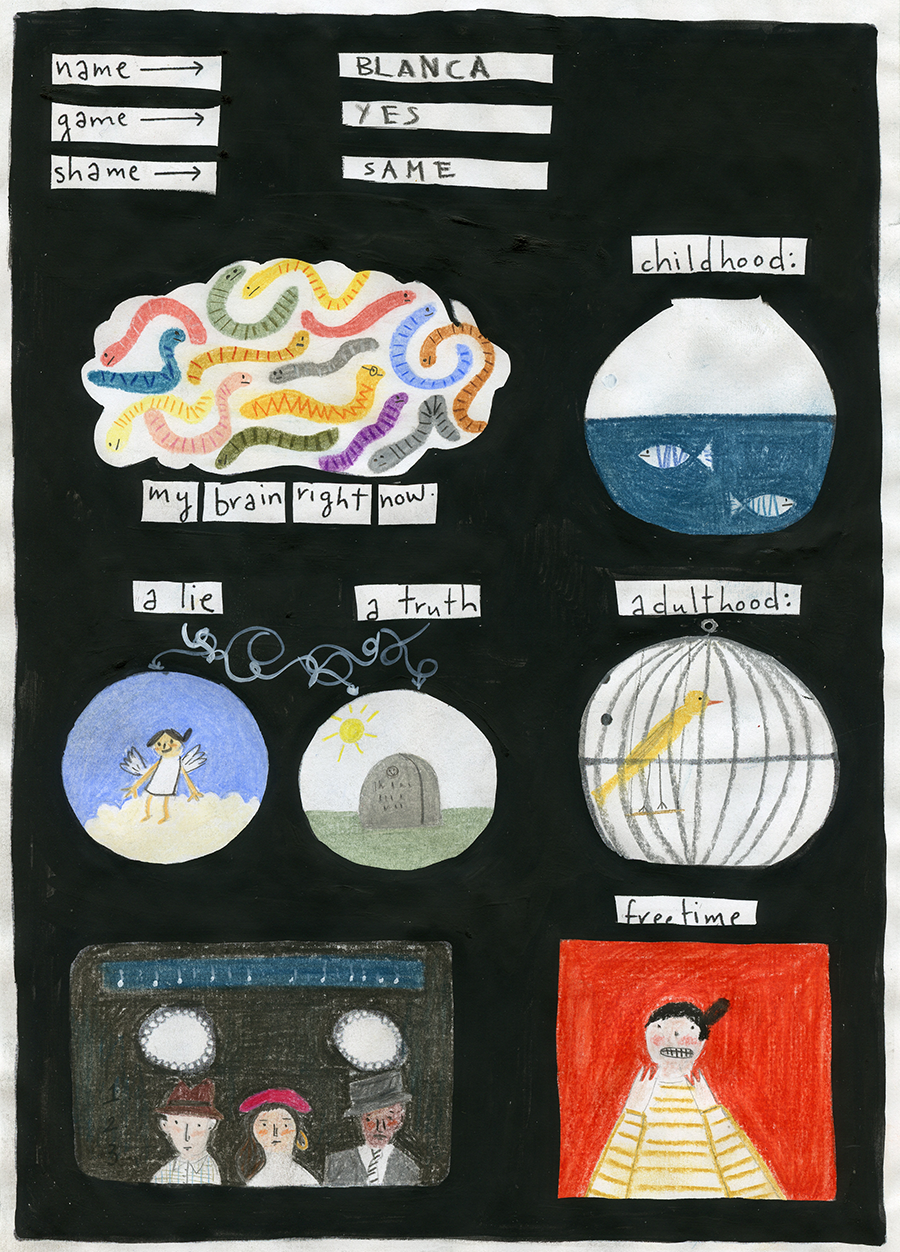 name → BLANCA
game → YES
shame → SAME
childhood:
my brain right now.
a lie
a truth
adulthood:
freetime
1
2
3